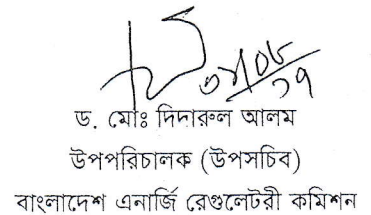 ড. মোঃ দিদারুল আলম
উপপরিচালক (উপসচিব)
বাংলাদেশ এনার্জি রেগুলেটরী কমিশন